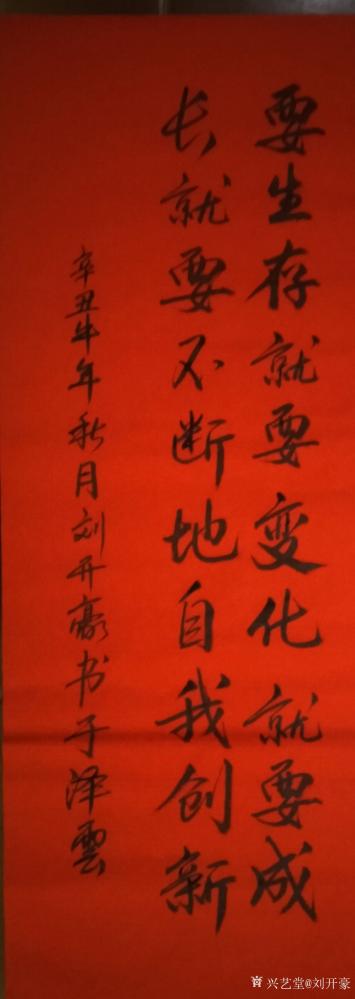 要生存就要变化就要成
长就要不断地自我创新
辛丑牛年秋月刘开豪书于泽雲
兴艺堂@刘开豪